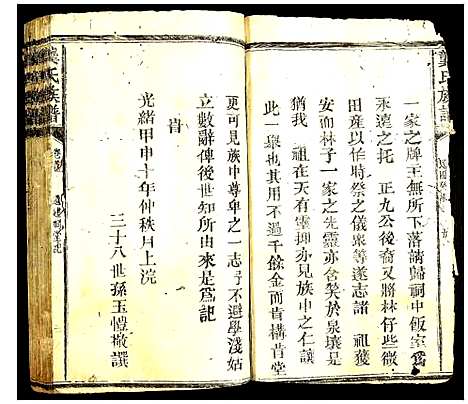 一家之牌主無所下落請歸祠中飯室為
汞濃之托 正九公後裔又將林仔些微
田產以作時祭之儀衆等遂志諸 祖獲
安而林子一家之先靈亦含笑於泉壤是
猶我 祖在天有靈抑亦見族中之仁讓
此一舉也其用不過千餘金而肯構肯堂
更可見族中尊卑之一志予不避學淺姑
立數辭俾後世知所由去是為記
旹
光緒甲申十年仲秋月上浣
三十八世孫玉愷撰
龔氏族譜
龔氏族譜